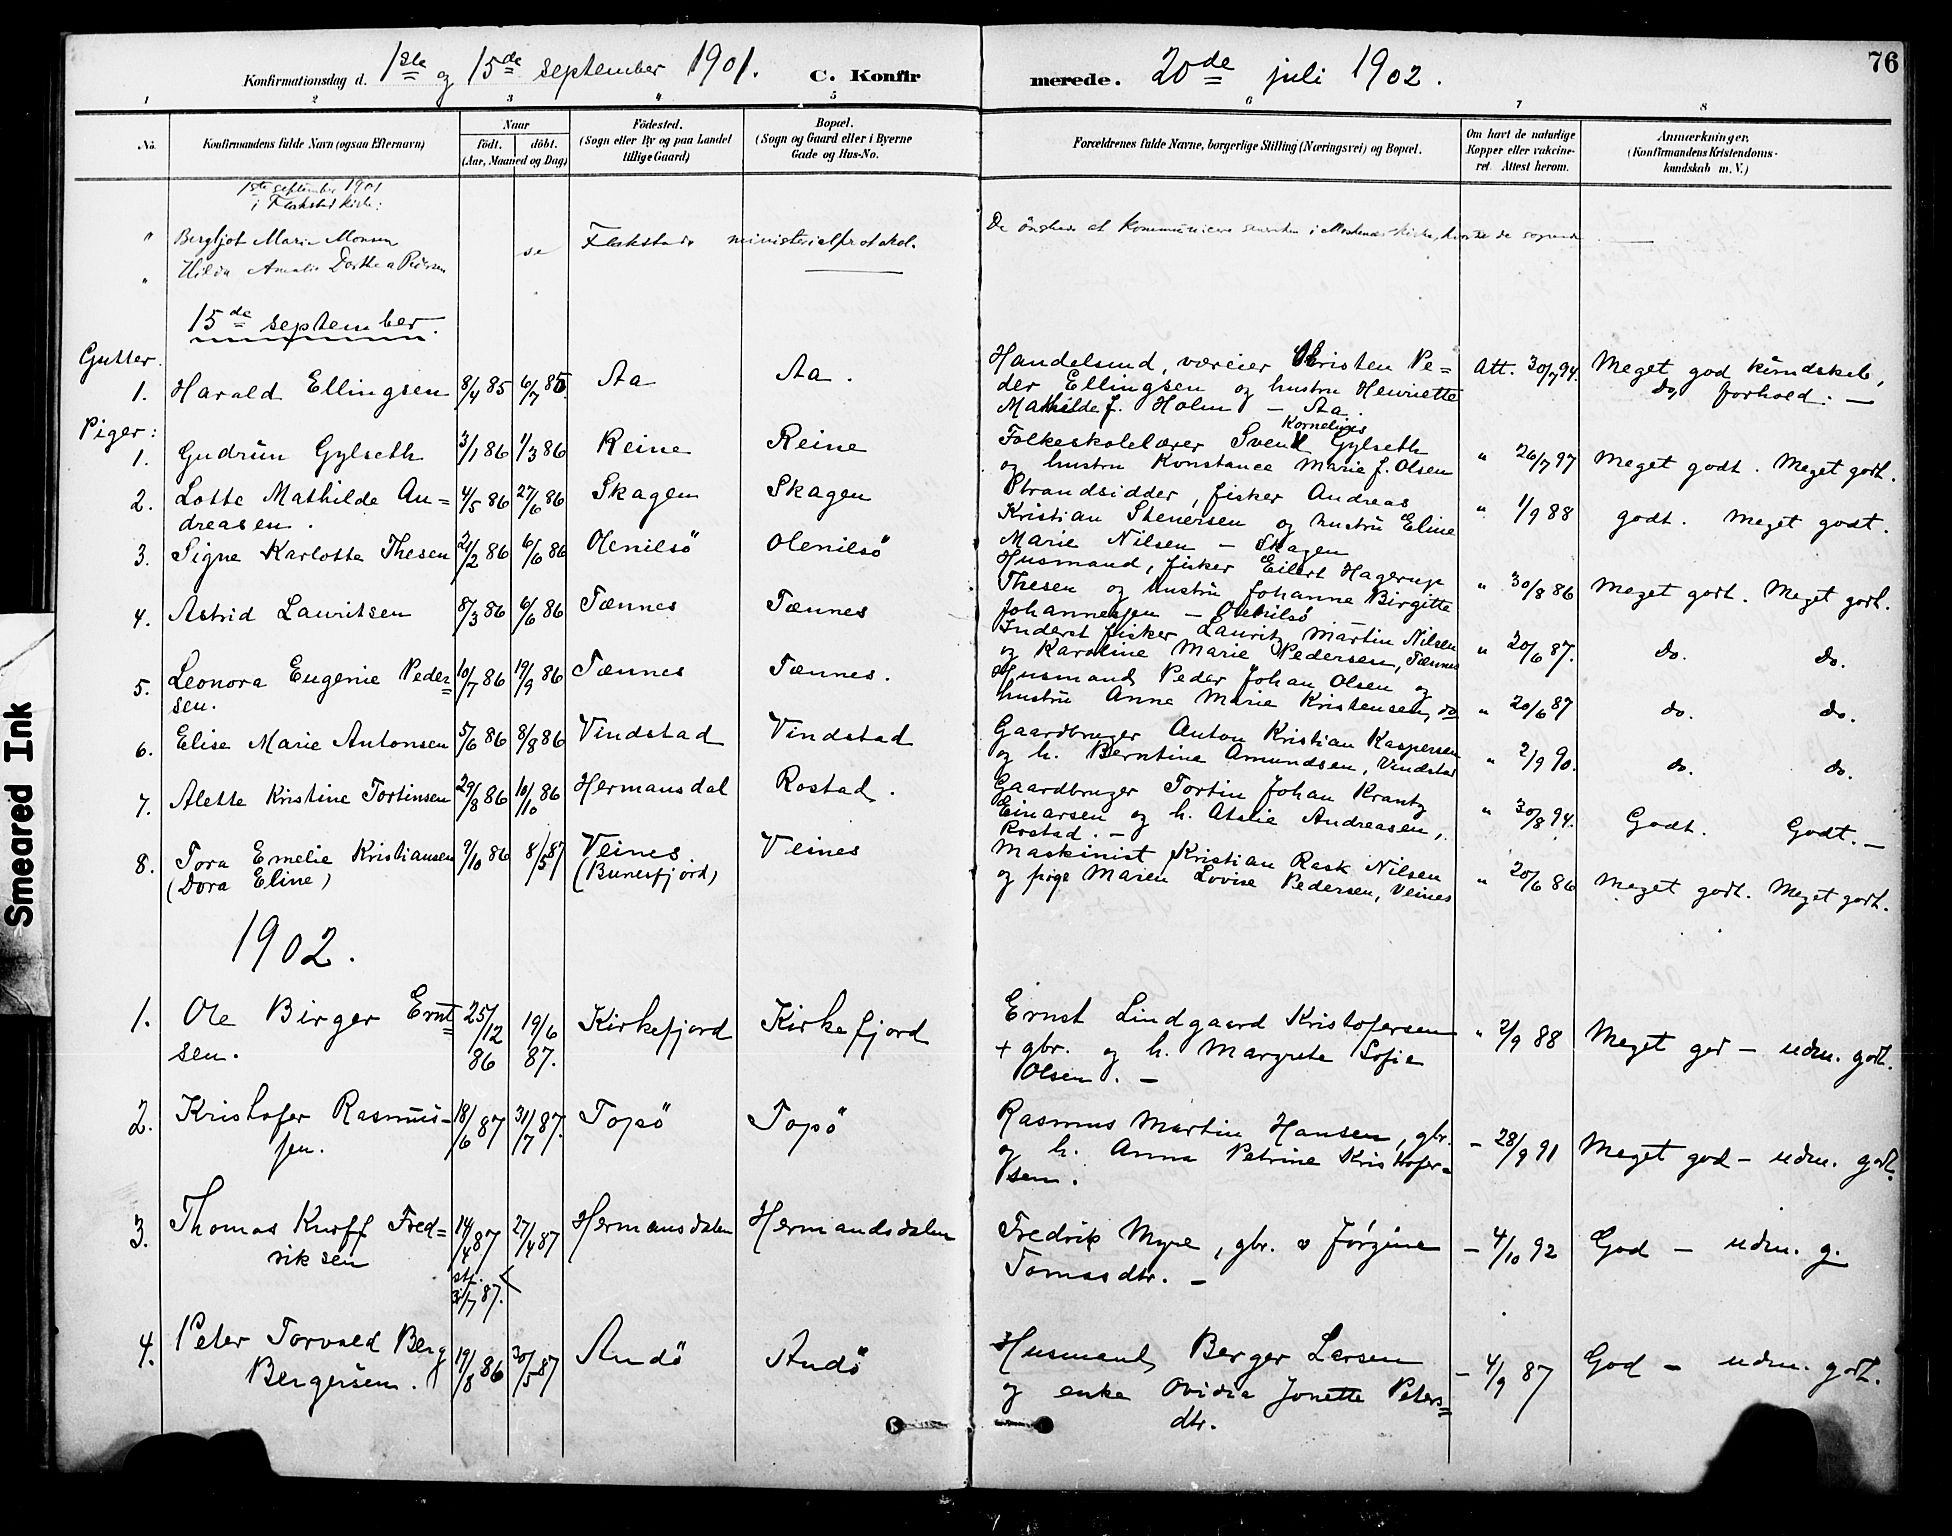 76
Konfirmationsdag d. 1ste og 15de september 1901. C. Konfirmerede. 20de juli 1902.
1 2 3 4 5 6 7 8
No. Konfirmandens fulde Navn (ogsaa Efternavn) Naar födt. döbt. (Aar, Maaned og Dag) Födested. (Sogn eller By og paa Landet tillige Gaard) Bopæl. (Sogn og Gaard eller i Byerne Gade og Hus-No. Forældrenes fulde Navne, borgerlige Stilling (Næringsvei) og Bopæl. Om havt de naturlige Kopper eller vakcineret Attest herom. Anmærkninger. (Konfirmandens Kristendomskundskab m. V.)
1ste september 1901
i Flakstad kirke:
" Bergljot Marie Monsen
" Hilda Amalie Dorthea
se Flakstads ministerialprotokol.
De önskede at kommunicere i Moskenes kirke,
15de september.
Gutter.
1. Harald Ellingsen 8/4 85 6/7 85 Aa Aa.
Handelsmd, væreier Kristen Pe=
der Ellingsen og hustru Henriette
Mathilde f. Holm – Aa.
Att. 30/7 94. Meget god kundskab,
do forhold. —
Piger:
1. Gudrun Gylseth 3/1 86 1/3 86 Reine Reine
Kornelius
Folkeskolelærer Svend Gylseth
og hustru Konstance Marie f. Olsen
" 26/7 97 Meget godt. Meget godt.
2. Lotte Mathilde An=
dreasen.
4/5 86 27/6 86 Skagen Skagen
Strandsidder, fisker Andreas
Kristian Stenersen og hustru Eline
Marie Nilsen – Skagen
" 1/9 88 godt. Meget godt.
3. Signe Karlotte Thesen 21/2 86 6/6 86 Olenilsö Olenilsö
Husmand, fisker Eilert Hagerup
Thesen og hustru Johanne Birgitte
Johannesen – Olenilsö
" 30/8 86 Meget godt. Meget godt.
4. Astrid Lauritsen 8/3 86 6/6 86 Tænnes Tænnes
Inderst fisker Lauritz Martin Nilsen
og Karoline Marie Pedersen, Tænnes
" 20/6 87. do. do.
5. Leonora Eugenie Peder=
sen.
10/7 86 19/9 86 Tænnes Tænnes.
Husmand Peder Johan Olsen og
hustru Anne Marie Kristensen, do
" 20/6 87 do. do.
6. Elise Marie Antonsen 5/6 86 8/8 86 Vindstad Vindstad
Gaardbruger Anton Kristian Kaspersen
og h. Berntine Amundsen, Vindstad
" 2/9 90. do. do.
7. Alette Kristine Tortinsen 29/8 86 10/10 86 Hermansdal Rostad.
Gaardbruger Tortin Johan Krantz
Einarsen og h. Atalie Andreasen,
Rostad. –
" 30/8 94. Godt. Godt. –
8. Tora Emelie Kristiansen
(Dora Eline)
9/10 86 8/5 87 Veines
(Bunesfjord)
Veines
Maskinist Kristian Rask Nilsen
og pige Maren Lovise Pedersen, Veines
" 20/6 86 Meget godt. Meget godt.
1902.
1. Ole Birger Ernt=
sen.
25/12 86 19/6 87. Kirkefjord Kirkefjord
Ernst Lindgaard Kristofersen
+ gbr. og h. Margrete Sofie
Olsen. –
" 2/9 88 Meget god – udm. godt.
2. Kristofer Rasmus-
sen.
18/6 87 31/7 87. Topsö Topsö
Rasmus Martin Hansen, gbr.
og h. Anna Petrine Kristofer=
sen.
– 28/9 91 Meget god – udm. godt.
3. Thomas Kurff Fred=
riksen
14/4 87 27/4 87
stf.
31/7 87.
Hermansdalen Hermandsdalen
Fredrik Myre, gbr. o Jørgine
Tomasdtr. –
– 4/10 92 God – udm. g.
4. Peter Torvald Berg
Bergersen.
19/8 86 30/5 87 Andö Andö
Husmand Berger Larsen
og enke Ovidia Jonette Peters=
dtr.
– 4/9 87 God – udm. godt.
Smeared Ink